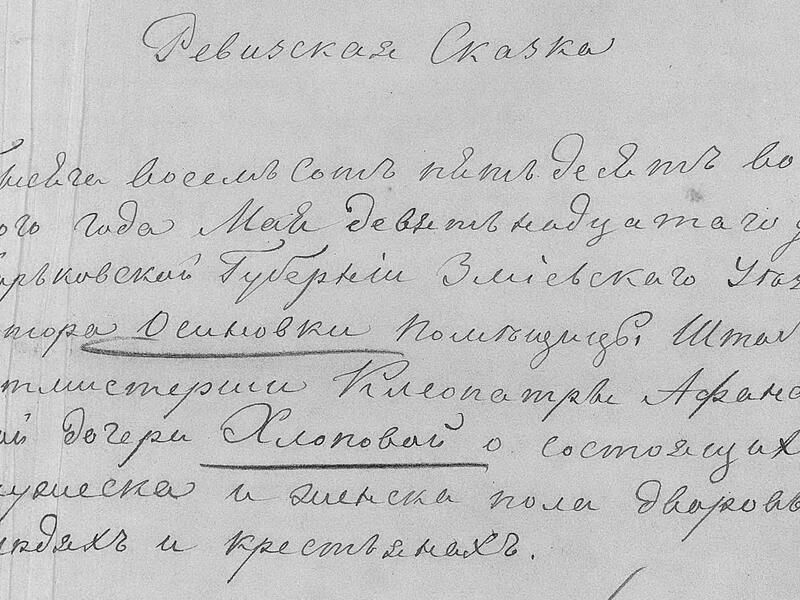 Ревизская Сказка
тысяча восемьсотъ пятьдесятъ во
ого года Мая девятьнадцатаго д
арьковской Губерніи Зміевскаго Уез
тора Осиновки помѣщицы Штаб
отмистерши Клеопатры Афана
ой дочери Хлоповой о состоящих
мужеска и женска пола дворовы
людяхъ и крестьянахъ.